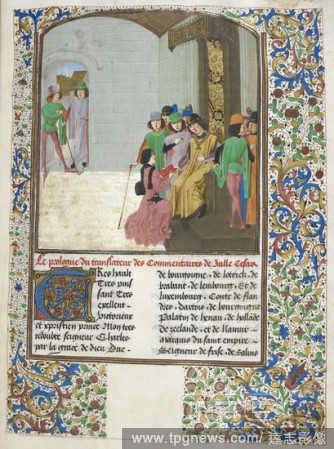 Le prologue du translateur des Commentaires de Julle Cesar
Tres hault
Tres puis
sant Tres
excellent
victorieux
et xpistien prince Mon tres
redoubte seigneur Charles
par la grace de dieu Duc
de bourgoigne . de loreich . de
brabant . de lembourg . Et de
luxembourg . Conte de flan
dres . dartois . de bourgoigne
Palatin de henau . de hollade
de zeelande . et de Namur
marquis du saint empire
Seigneur de frise . de salins
www.tpgnews.com / 達志影像